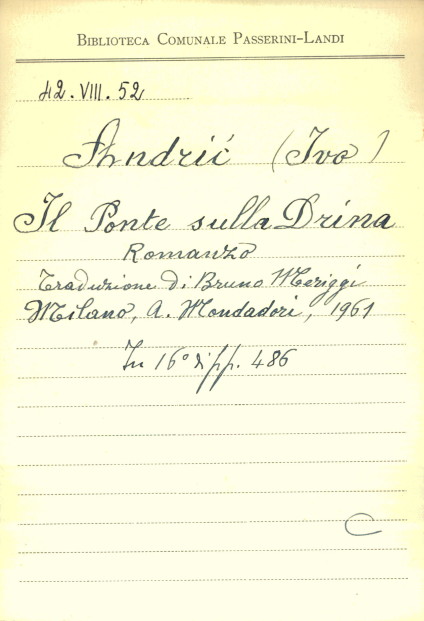 BIBLIOTECA COMUNALE PASSERINI-LANDI
42.VIII.52
Andrić (Ivo)
Il Ponte sulla Drina
Romanzo
Traduzione di Bruno Meriggi
Milano, A. Mondadori, 1961
In 16° di pp. 486
C